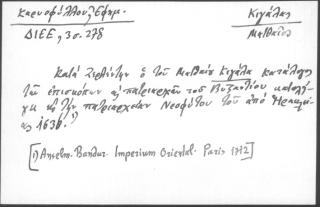 Καρυοφύλλου Ζ. Εφημ.
Κιγάλας
ΔΙΕΕ, 3 σ. 278
Ματθαῖος
Κατὰ Σερβεῖτον ὁ τοῦ Ματθαίου Κιγάλα κατάλογος
τῶν ἐπισκόπων κ) πατριαρχῶν τοῦ Βυζαντίου καταλή-
γει εἰς τὴν πατριαρχείαν Νεοφύτου τοῦ ἀπὸ Ἡρακλείας
1636.¹)
[¹) Anselm. Bandur. Imperium Oriental. Paris 1712]